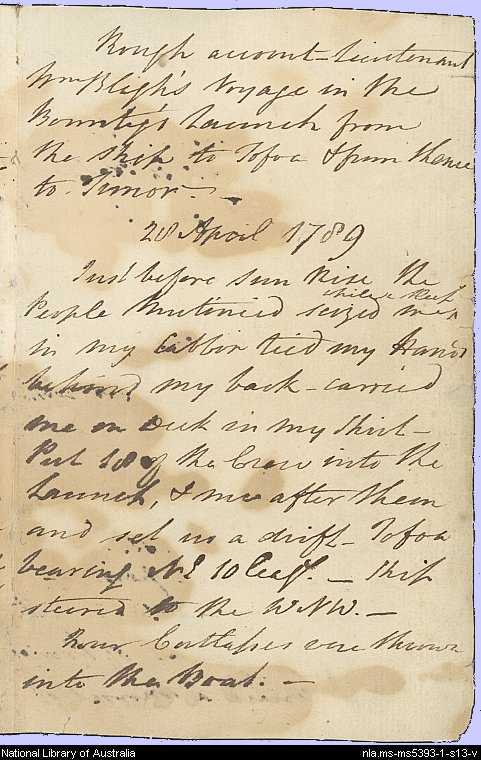 Rough account - Lieutenant
Wm Bligh's Voyage in the
Bounty's Launch from
the Ship to Tofoa & from thence
to Timor -
28 April 1789
Just before sun rise the
People Mutinied seized me
while asleep
in my Cabbin tied my Hands
behind my back - carried
me on Deck in my Shirt -
Put 18 of the Crew into the
Launch, & me after them
and set us a drift - Tofoa
bearing NE 10 Leags. - Ship
steered to the WNW. -
Four Cutlasses were thrown
into the Boat. -
National Library of Australia
nla.ms-ms5393-1-s13-v